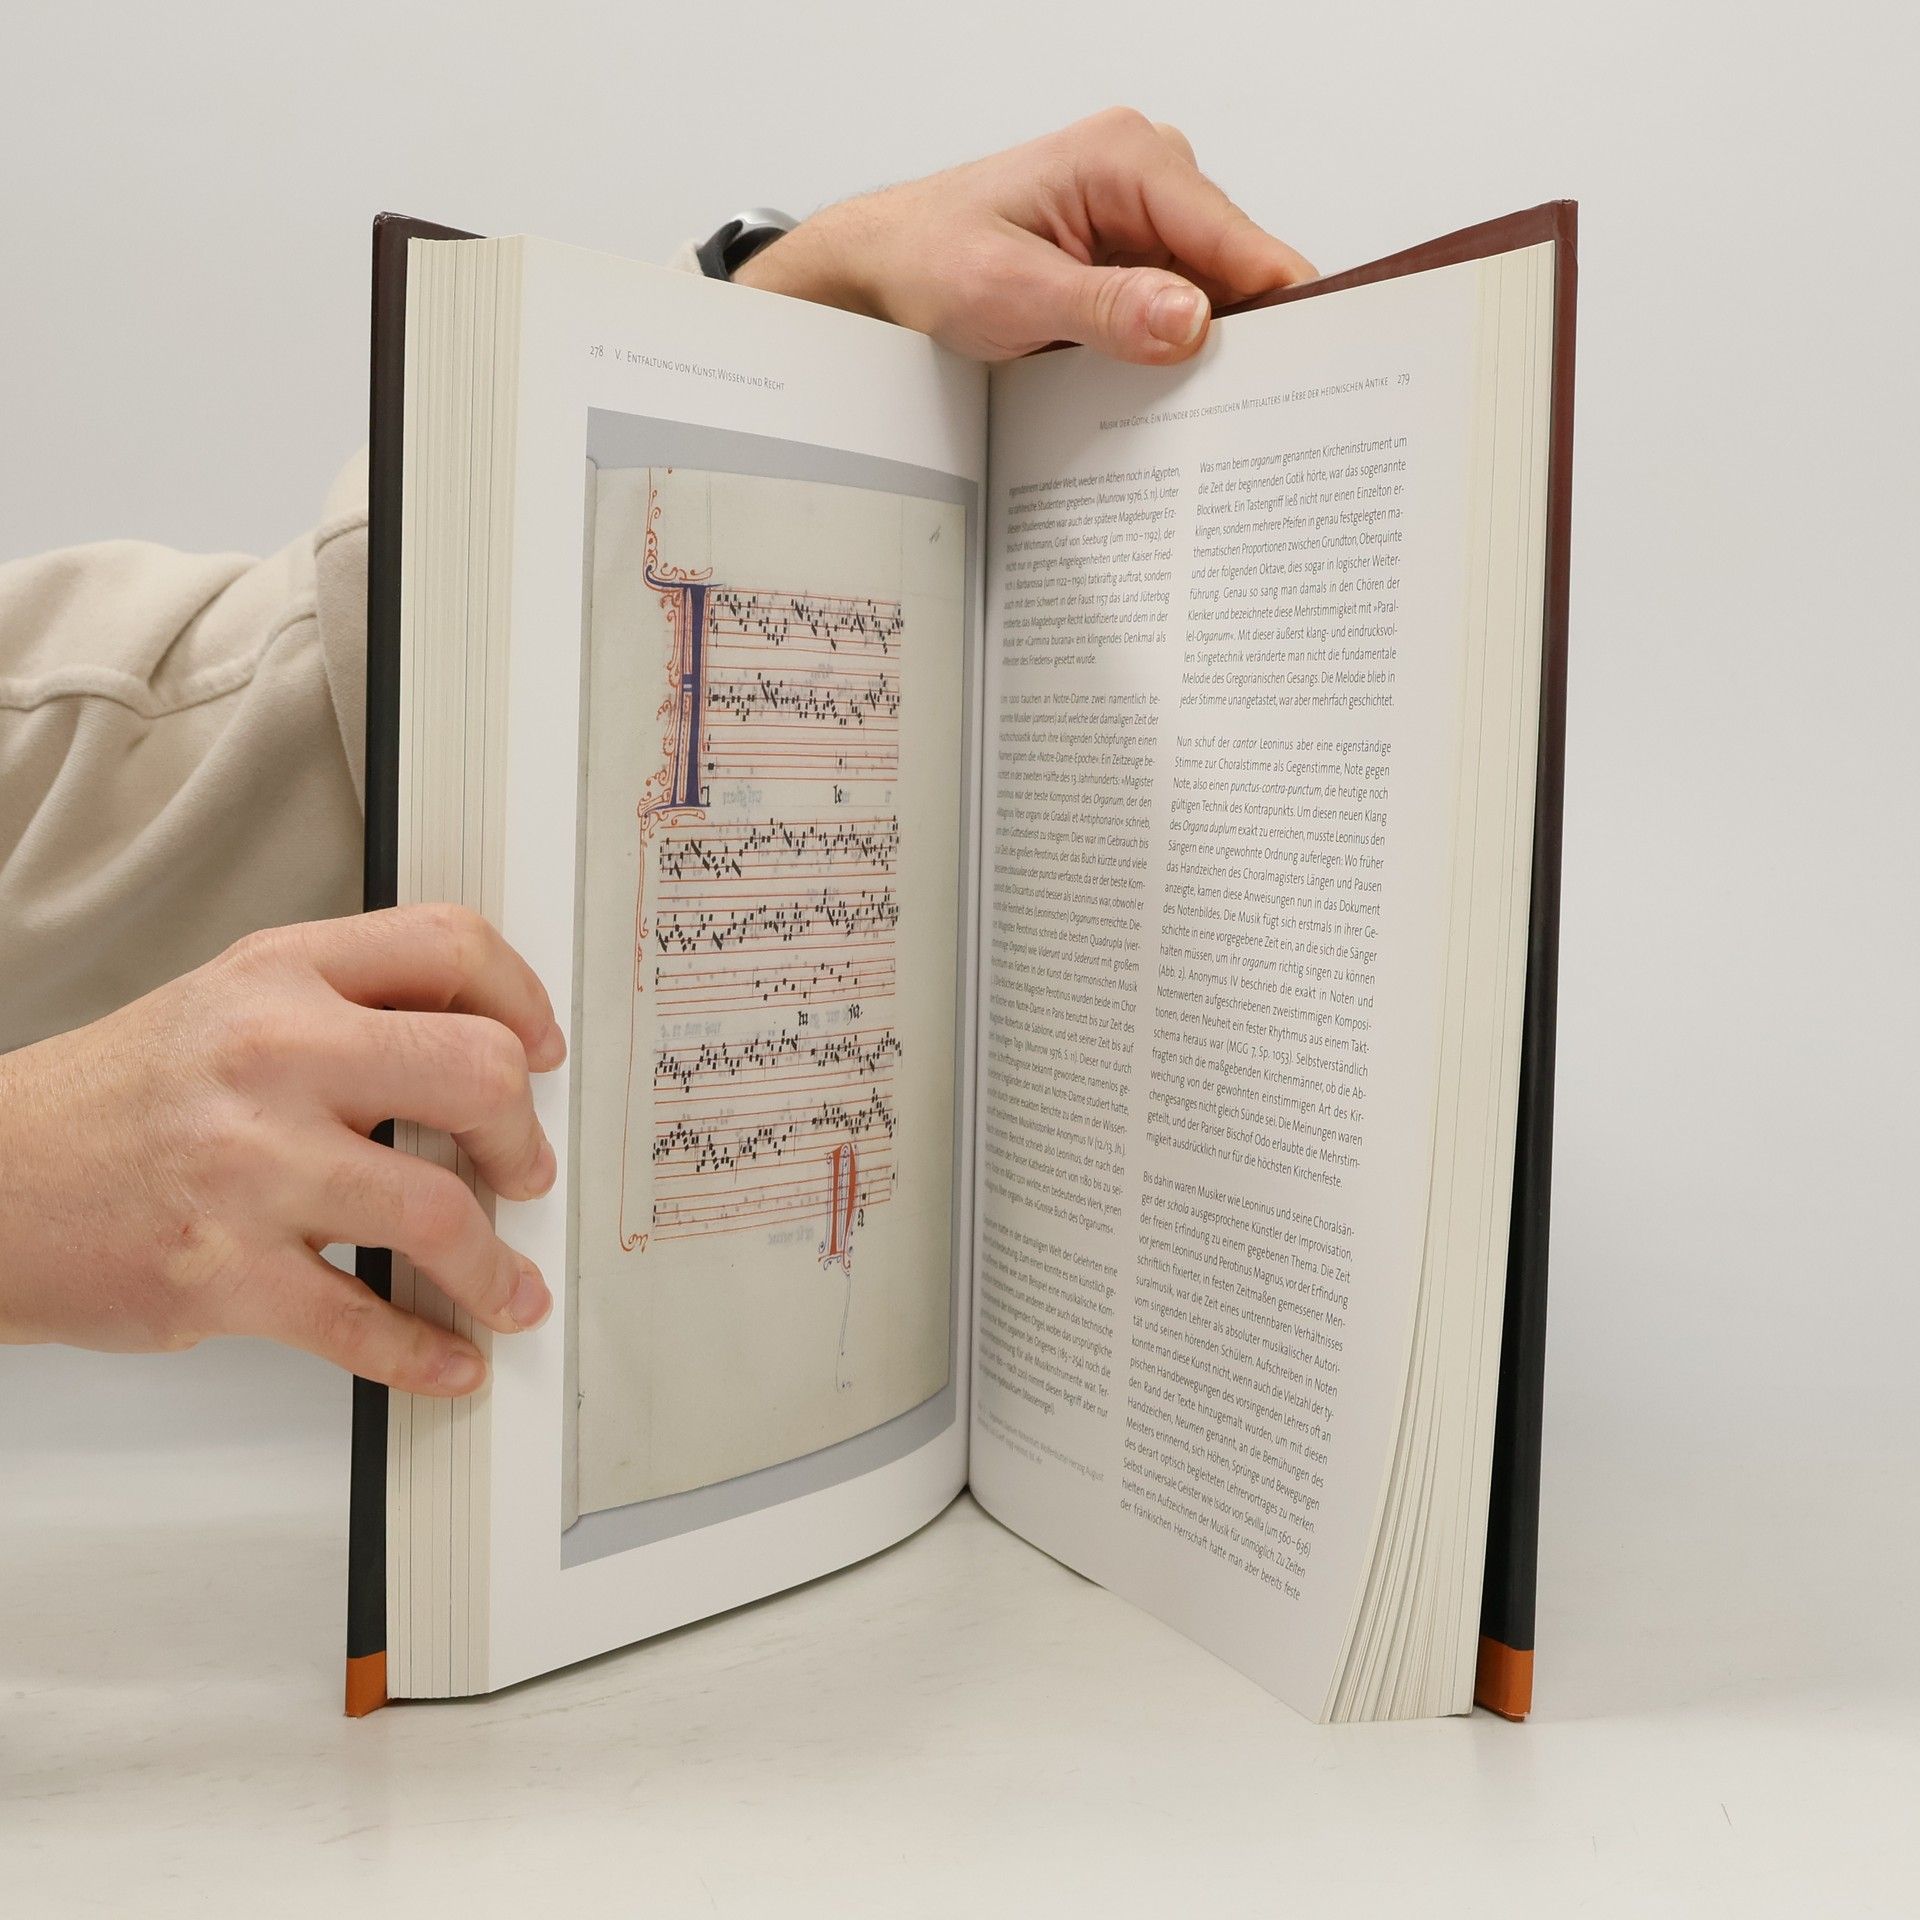 278 V. Entfaltung von Kunst, Wissen und Recht
le
lu
ya.
a
Musik der Gotik. Ein Wunder des christlichen Mittelalters im Erbe der heidnischen Antike 279
irgendeinem Land der Welt, weder in Athen noch in Ägypten,
so zahlreiche Studenten gegeben« (Munrow 1976, S. 11). Unter
diesen Studierenden war auch der spätere Magdeburger Erz-
bischof Wichmann, Graf von Seeburg (um 1110–1192), der
nicht nur in geistigen Angelegenheiten unter Kaiser Fried-
rich I. Barbarossa (um 1122–1190) tatkräftig auftrat, sondern
auch mit dem Schwert in der Faust 1157 das Land Jüterbog
eroberte, das Magdeburger Recht kodifizierte und dem in der
Musik der »Carmina burana« ein klingendes Denkmal als
»Meister des Friedens« gesetzt wurde.
Um 1200 tauchen an Notre-Dame zwei namentlich be-
nannte Musiker (cantores) auf, welche der damaligen Zeit der
Hochscholastik durch ihre klingenden Schöpfungen einen
Namen gaben: die »Notre-Dame-Epoche«. Ein Zeitzeuge be-
richtet in der zweiten Hälfte des 13. Jahrhunderts: »Magister
Leoninus war der beste Komponist des Organum, der den
»Magnus liber organi de Gradali et Antiphonario« schrieb,
um den Gottesdienst zu steigern. Dies war im Gebrauch bis
zur Zeit des großen Perotinus, der das Buch kürzte und viele
bessere clausulae oder puncta verfasste, da er der beste Kom-
ponist des Discantus und besser als Leoninus war, obwohl er
nicht die Feinheit des (Leoninschen) Organums erreichte. Die-
ser Magister Perotinus schrieb die besten Quadrupla (vier-
stimmige Organa) wie Viderunt und Sederunt mit großem
Reichtum an Farben in der Kunst der harmonischen Musik
Die Bücher des Magister Perotinus wurden beide im Chor
der Kirche von Notre-Dame in Paris benutzt bis zur Zeit des
Magister Robertus de Sabilone, und seit seiner Zeit bis auf
den heutigen Tag« (Munrow 1976, S. 11). Dieser nur durch
seine Schriftzeugnisse bekannt gewordene, namenlos ge-
bliebene Engländer, der wohl an Notre-Dame studiert hatte,
wurde durch seine exakten Berichte zu dem in der Wissen-
schaft berühmten Musikhistoriker Anonymus IV (12./13. Jh.).
Nach seinem Bericht schrieb also Leoninus, der nach den
der Pariser Kathedrale dort von 1180 bis zu sei-
nem Tode im März 1201 wirkte, ein bedeutendes Werk, jenen
»Magnus liber organi«, das »Grosse Buch des Organums«.
Organum hatte in der damaligen Welt der Gelehrten eine
Zum einen konnte es ein künstlich ge-
Werk wie zum Beispiel eine musikalische Kom-
position bezeichnen, zum anderen aber auch das technische
der klingenden Orgel, wobei das ursprüngliche
griechische Wort organon bei Origenes (185–254) noch die
für alle Musikinstrumente war. Ter-
nach 220) nimmt diesen Begriff aber nur
(Wasserorgel).
Wolfenbüttel Herzog August
Was man beim organum genannten Kircheninstrument um
die Zeit der beginnenden Gotik hörte, war das sogenannte
Blockwerk. Ein Tastengriff ließ nicht nur einen Einzelton er-
klingen, sondern mehrere Pfeifen in genau festgelegten ma-
thematischen Proportionen zwischen Grundton, Oberquinte
und der folgenden Oktave, dies sogar in logischer Weiter-
führung. Genau so sang man damals in den Chören der
Kleriker und bezeichnete diese Mehrstimmigkeit mit »Paral-
lel-Organum«. Mit dieser äußerst klang- und eindrucksvol-
len Singetechnik veränderte man nicht die fundamentale
Melodie des Gregorianischen Gesangs. Die Melodie blieb in
jeder Stimme unangetastet, war aber mehrfach geschichtet.
Nun schuf der cantor Leoninus aber eine eigenständige
Stimme zur Choralstimme als Gegenstimme, Note gegen
Note, also einen punctus-contra-punctum, die heutige noch
gültigen Technik des Kontrapunkts. Um diesen neuen Klang
des Organa duplum exakt zu erreichen, musste Leoninus den
Sängern eine ungewohnte Ordnung auferlegen: Wo früher
das Handzeichen des Choralmagisters Längen und Pausen
anzeigte, kamen diese Anweisungen nun in das Dokument
des Notenbildes. Die Musik fügt sich erstmals in ihrer Ge-
schichte in eine vorgegebene Zeit ein, an die sich die Sänger
halten müssen, um ihr organum richtig singen zu können
(Abb. 2). Anonymus IV beschrieb die exakt in Noten und
Notenwerten aufgeschriebenen zweistimmigen Komposi-
tionen, deren Neuheit ein fester Rhythmus aus einem Takt-
schema heraus war (MGG 7, Sp. 1053). Selbstverständlich
fragten sich die maßgebenden Kirchenmänner, ob die Ab-
weichung von der gewohnten einstimmigen Art des Kir-
chengesanges nicht gleich Sünde sei. Die Meinungen waren
geteilt, und der Pariser Bischof Odo erlaubte die Mehrstim-
migkeit ausdrücklich nur für die höchsten Kirchenfeste.
Bis dahin waren Musiker wie Leoninus und seine Choralsän-
ger der schola ausgesprochene Künstler der Improvisation,
der freien Erfindung zu einem gegebenen Thema. Die Zeit
vor jenem Leoninus und Perotinus Magnus, vor der Erfindung
schriftlich fixierter, in festen Zeitmaßen gemessener Men-
suralmusik, war die Zeit eines untrennbaren Verhältnisses
vom singenden Lehrer als absoluter musikalischer Autori-
tät und seinen hörenden Schülern. Aufschreiben in Noten
konnte man diese Kunst nicht, wenn auch die Vielzahl der ty-
pischen Handbewegungen des vorsingenden Lehrers oft an
den Rand der Texte hinzugemalt wurden, um mit diesen
Handzeichen, Neumen genannt, an die Bemühungen des
Meisters erinnernd, sich Höhen, Sprünge und Bewegungen
des derart optisch begleiteten Lehrervortrages zu merken.
Selbst universale Geister wie Isidor von Sevilla (um 560–636)
hielten ein Aufzeichnen der Musik für unmöglich. Zu Zeiten
der fränkischen Herrschaft hatte man aber bereits feste